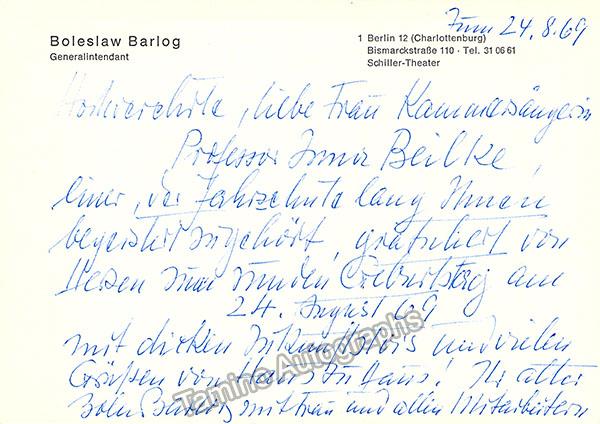 Zum 24.8.69
Boleslaw Barlog
Generalintendant
1 Berlin 12 (Charlottenburg)
Bismarckstraße 110 · Tel. 31 06 61
Schiller-Theater
Hochverehrte, liebe Frau Kammersängerin
Professor Irma Beilke,
einer, der Jahrzehnte lang Ihnen
begeistert zugehört, gratuliert von
Herzen zum runden Geburtstag am
24. August 69
mit dicken und vielen
Grüßen von Haus zu Haus! Ihr alter
Barlog mit Frau und allen Mitarbeitern
Tamino Autographs